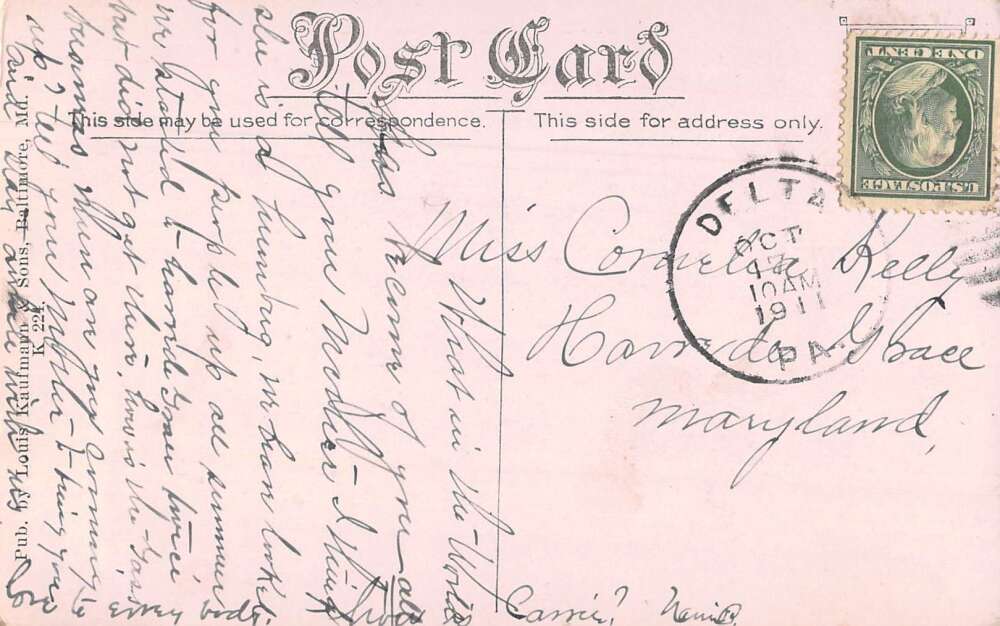 Post Card
This side may be used for correspondence.
This side for address only.
ONE CENT
U.S. POSTAGE
DELTA
OCT
10 AM
1911
PA.
Miss Cornelia Kelly
Havre de Grace
Maryland,
What in the World
has become of you all
tell your Mother - I think
she is a humbug, we have looked
for you people up all summer
we started to havre de Grace twice
but did not get there, how is the
business When are you coming to
up? tell your Mother to bring you
and
Love to every body.
Carrie?
Pub. by Louis Kaufmann & Sons, Baltimore, Md.
K 224.